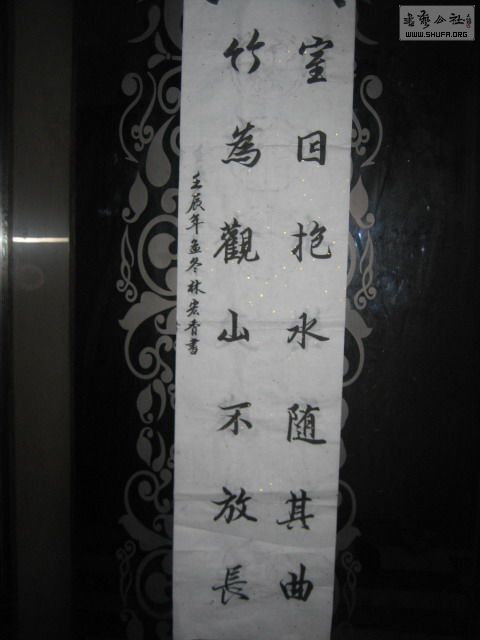 室因抱水随其曲
竹為觀山不放長
壬辰年孟冬林宏青書
书艺公社
WWW.SHUFA.ORG